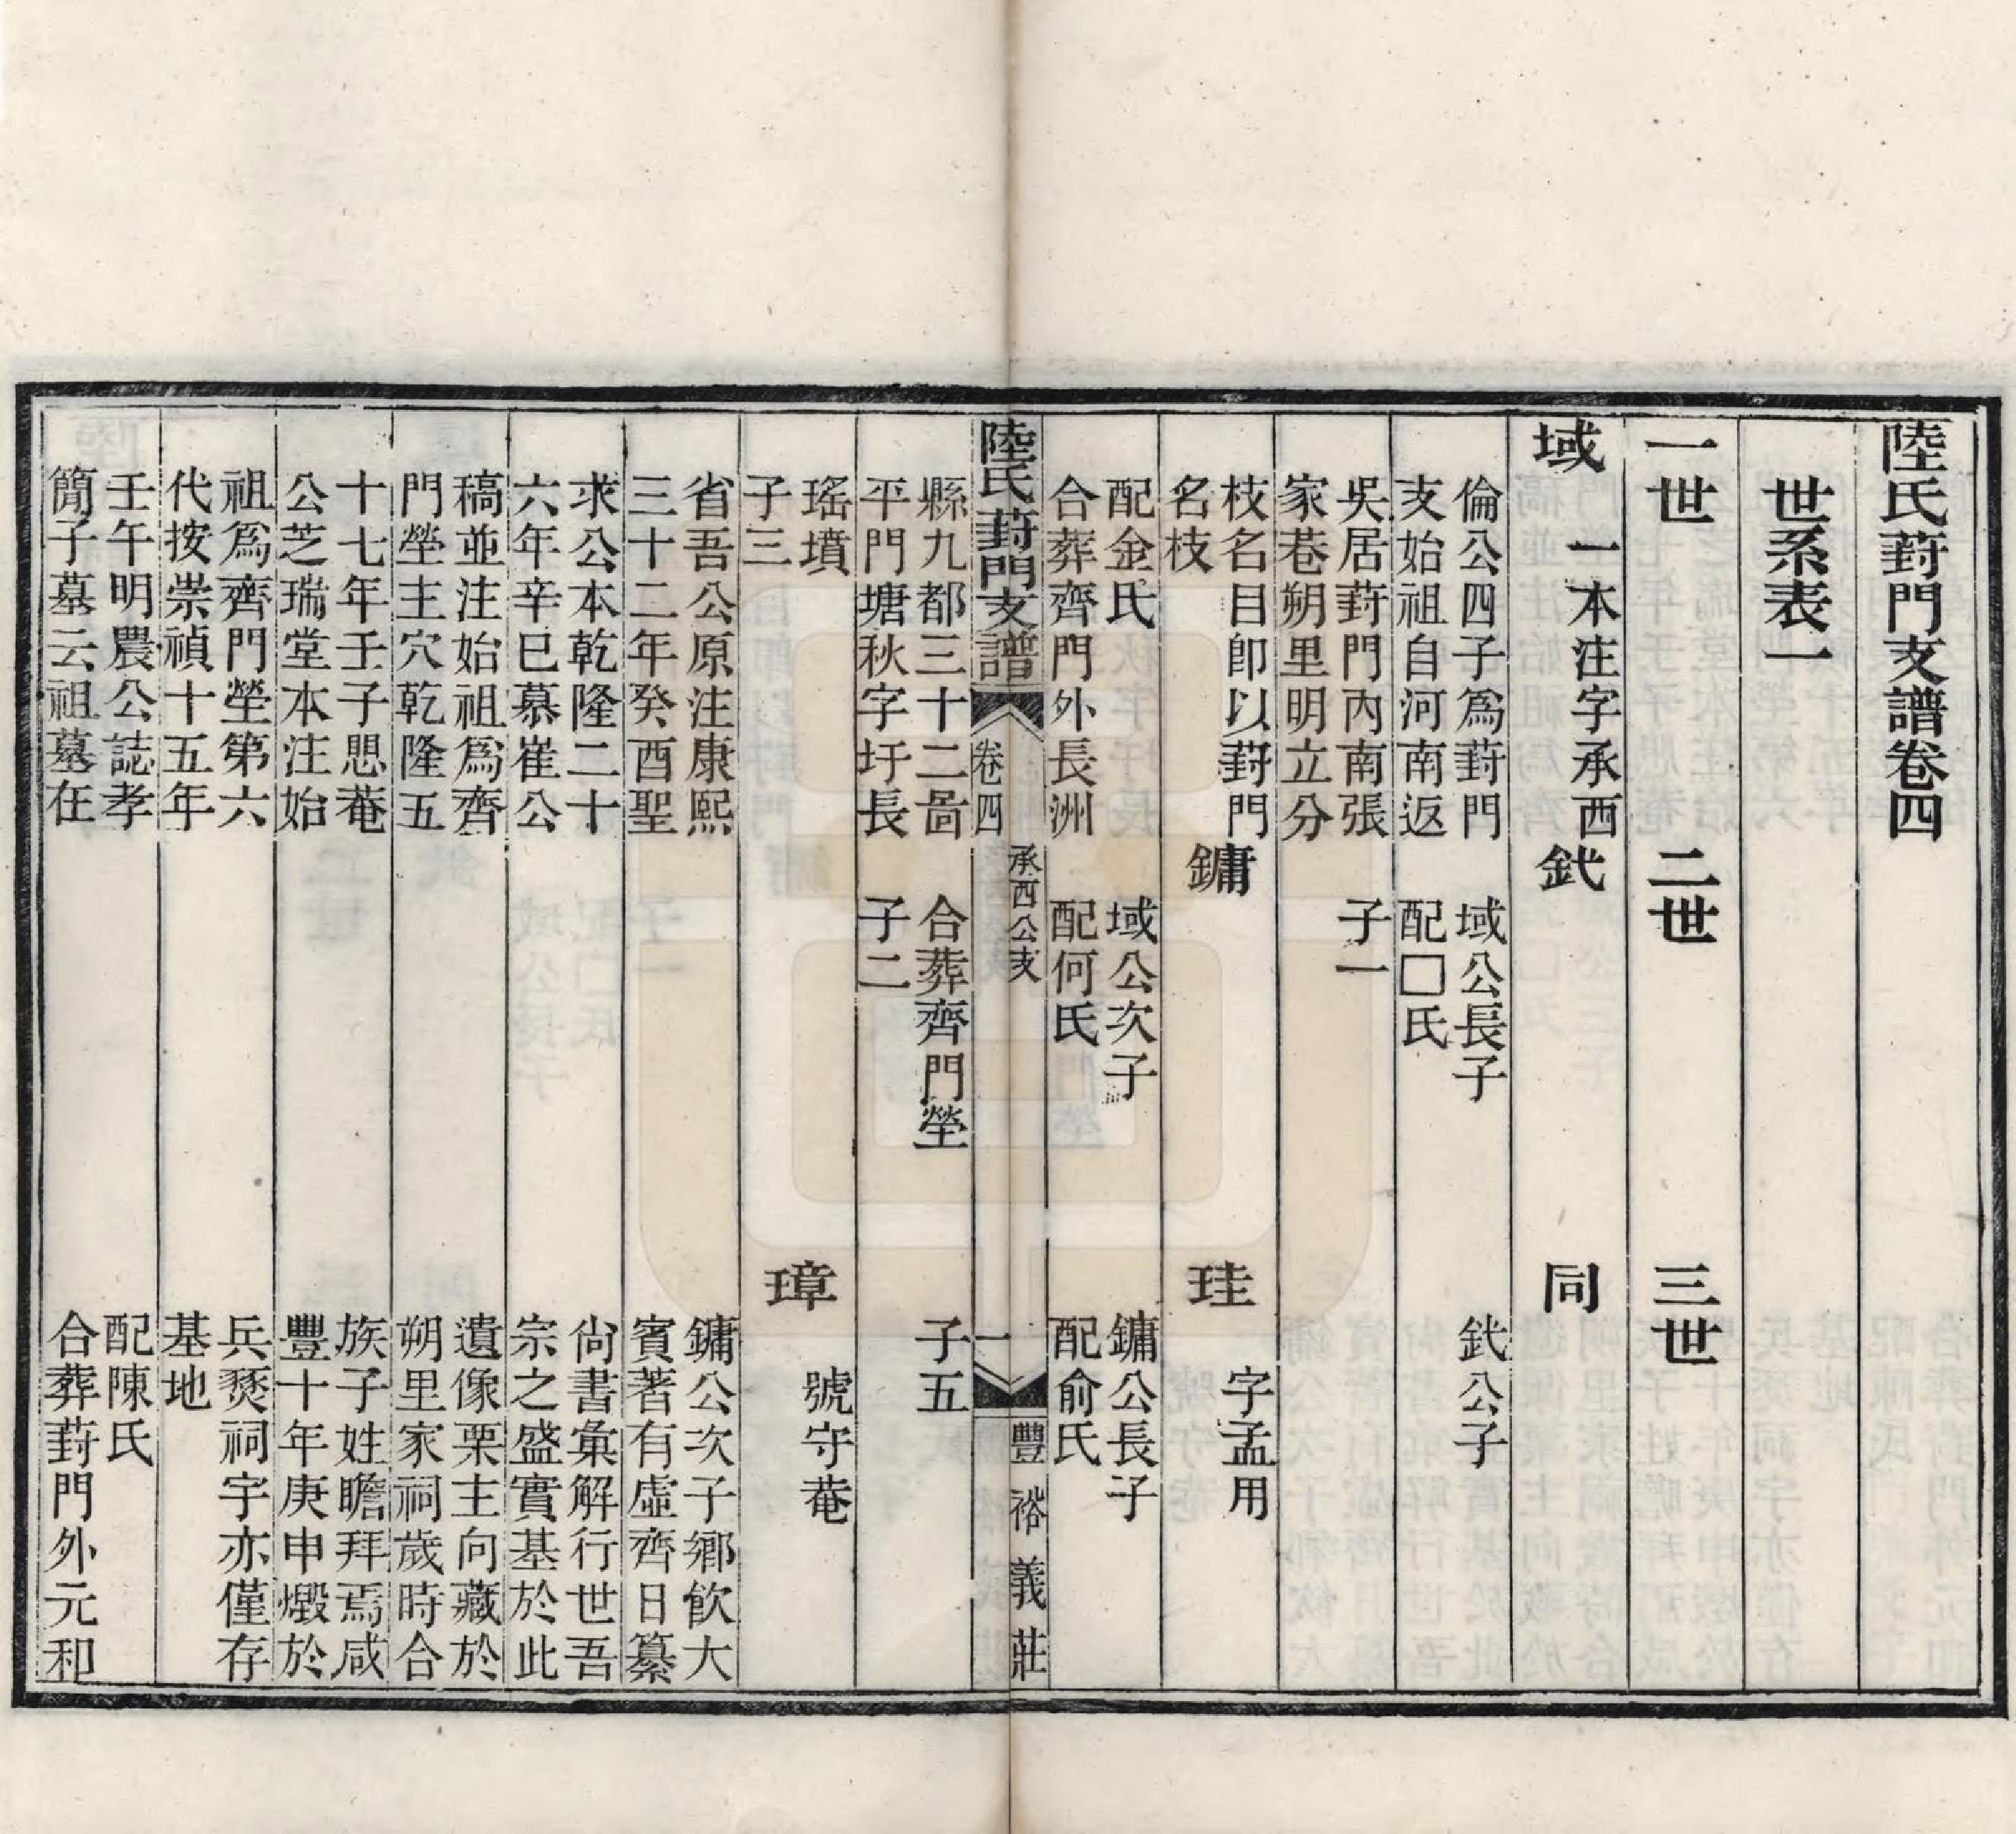 陸氏葑門支譜卷四
世系表一
一世
二世
三世
域
一本注字承西
倫公四子為葑門
支始祖自河南返
吳居葑門內南張
家巷朔里明立分
枝名目卽以葑門
名枝
配金氏
合葬齊門外長洲
縣九都三十二啚
平門塘秋字圩長
瑤墳
子三
省吾公原注康熙
三十二年癸酉聖
求公本乾隆二十
六年辛巳慕崔公
稿並注始祖爲齊
門塋主穴乾隆五
十七年壬子思菴
公芝瑞堂本注始
祖爲齊門塋第六
代按崇禎十五年
壬午明農公誌孝
簡子墓云祖墓在
鈂
域公長子
配□氏
子一
鏞
域公次子
配何氏
合葬齊門塋
子二
同
鈂公子
珪
字孟用
鏞公長子
配俞氏
子五
璋
號守菴
鏞公次子鄉飮大
賓著有虛齊日纂
尙書彙解行世吾
宗之盛實基於此
遺像栗主向藏於
朔里家祠歲時合
族子姓瞻拜焉咸
豐十年庚申燬於
兵燹祠宇亦僅存
基地
配陳氏
合葬葑門外元和
陸氏葑門支譜
卷四
承西公支
一
豐裕義莊